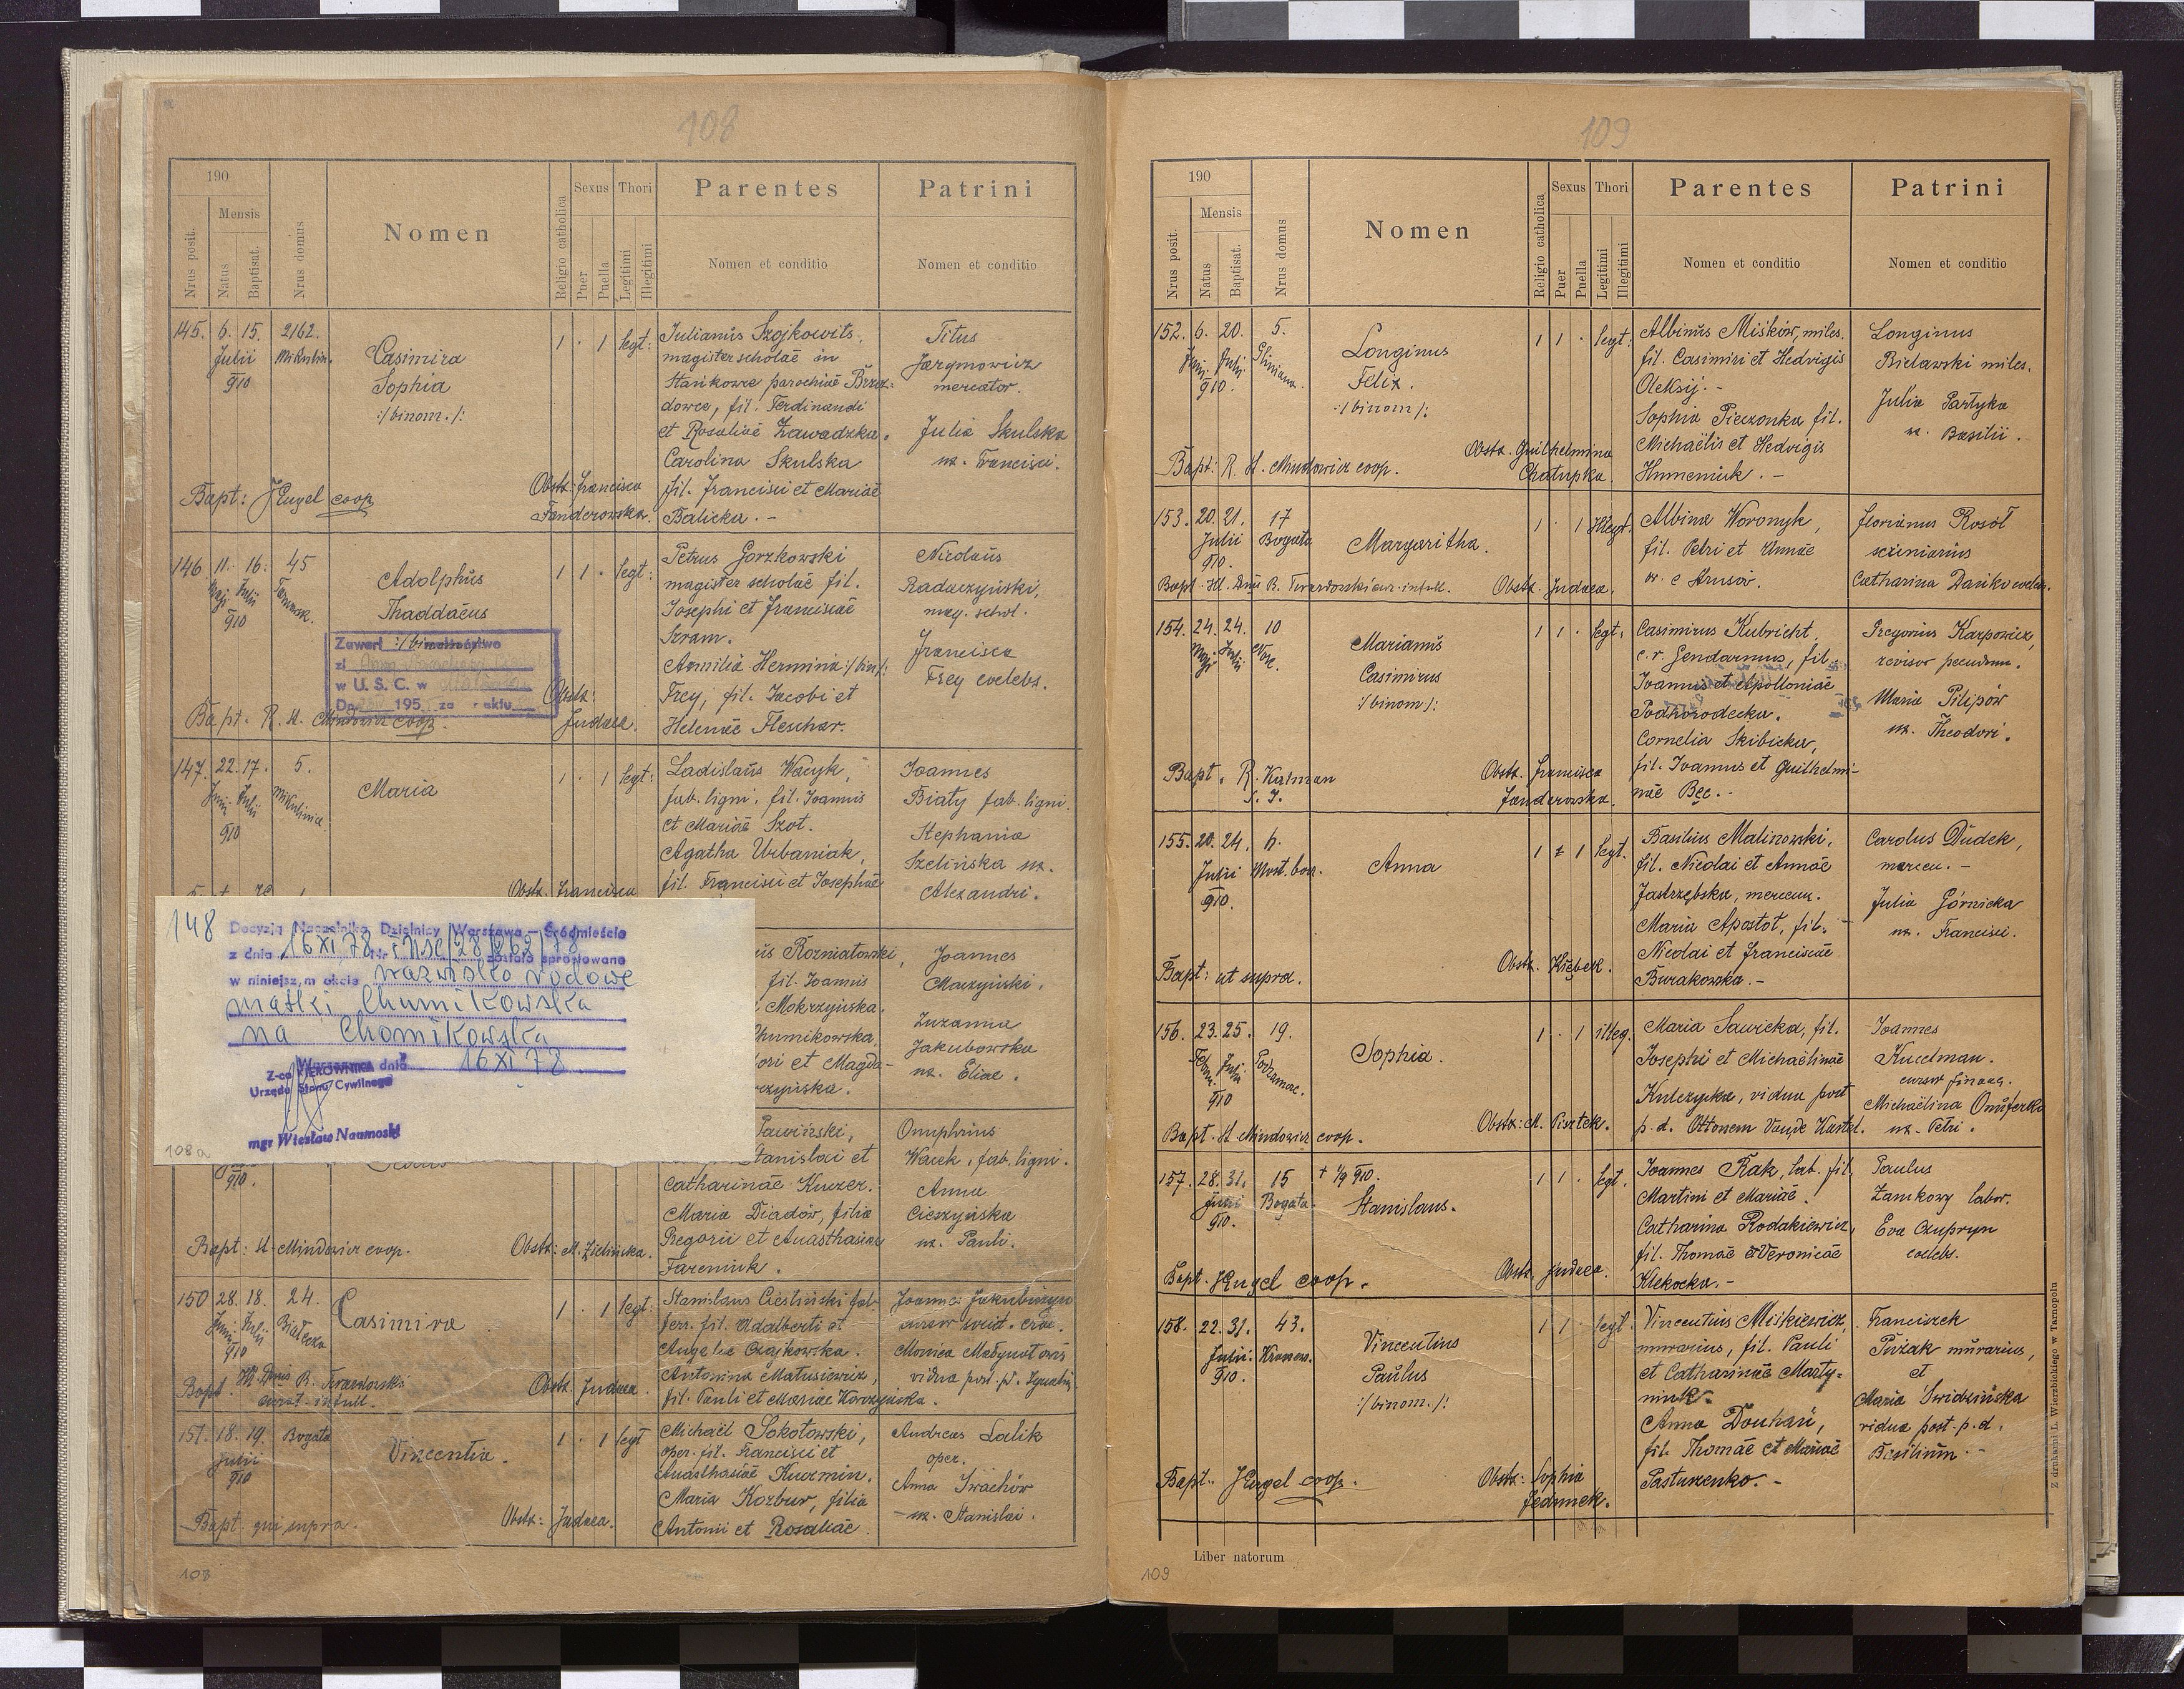 108
190
Nrus posit.
Mensis
Natus
Baptisat.
Nrus domus
Nomen
Religio catholica
Sexus
Puer
Puella
Thori
Legitimi
Illegitimi
Parentes
Nomen et conditio
Patrini
Nomen et conditio
145. 6. 15. 2162.
Julii Mikulin.
910
Casimira
Sophia
:/binom./:
1 · 1 legt:
Julianus Szojkowits,
magister scholae in
Stańkowce parochiae Brzoz-
dowce, fil. Ferdinandi
et Rosaliae Zawadzka.
Carolina Skulska
fil. Francisci et Mariae
Balicka. -
Titus
Jarymowicz
mercator.
Julia Skulska
ux. Francisci.
Bapt: JEngel coop
Obstx: Francisca
Fanderowska.
146. 11. 16. 45
Maji Julii Tarnowsk.
910
Adolphus
Thaddaeus
:/binom:/
1 1 · legt:
Petrus Gorzkowski
magister scholae fil.
Josephi et Franciscae
Szram.
Aemilia Hermina :/bin/:
Frey, fil. Jacobi et
Helenae Fleschar.
Nicolaus
Radaczyński,
mag. schol.
Francisca
Frey coelebs.
Zawarł małżeństwo
w U. S. C. w
Dn. 195 za akłu
Bapt. R. H. Mindowicz coop.
Obstx:
Judaea.
147. 22. 17. 5.
Junii Julii Mikulinie.
910
Maria
1 · 1 legt:
Ladislaus Wacyk,
fab. ligni, fil. Joannis
et Mariae Szot.
Agatha Urbaniak,
fil. Francisci et Josephae
Joannes
Biały fab. ligni.
Stephania
Szelińska ux.
Alexandri.
Obstx. Francisca
148 Decyzją Naczelnika Dzielnicy Warszawa – Śródmieście
z dnia 16 XI 78 r. Nr USC/28/262/78
została sprostowane
w niniejszym akcie nazwisko rodowe
matki Chumikowska
na Chomikowska
Warszawa dnia 16 XI 78
Z-ca KIEROWNIKA
Urzędu Stanu Cywilnego
mgr Wiesław Naumoski
108a
us Rozniatowski,
fil. Joannis
Mokrzyńska.
Chumikowska.
ori et Magda-
czyńska.
Joannes
Maczyński.
Zuzanna
Jakubowska
ux. Eliae.
910.
Pawiński,
Stanislai et
Catharinae Kuczer.
Maria Diadów, filia
Gregorii et Anasthasiae
Fareniuk.
Onuphrius
Wacek, fab. ligni.
Anna
Cieszyńska
ux. Pauli.
Bapt: H. Mindowicz coop.
Obstx: M. Zielińska.
150 28. 18. 24.
Junii Julii Białecka
910
Casimira
1 · 1 legt:
Stanislaus Ciesliński fab.
ferr. fil. Adalberti et
Angela Czajkowska.
Antonina Matusiewicz,
fil. Pauli et Mariae Korczyńska.
Monica
vidua post. p.
Bapt. R. Twardowski
Obstx. Judaea.
151. 18. 19. Bogata
Julii
910
Vincentia.
1 · 1 legt
Michaël Sokołowski,
oper. fil. Francisci et
Anasthasiae Kuzmin.
Maria Kozbur, filia
Antonii et Rosaliae.
Andreas Lalik
oper.
Anna Iwachów
ux. Stanislai.
Bapt. qui supra.
Obstx: Judaea.
108
109
190
Nrus posit.
Mensis
Natus
Baptisat.
Nrus domus
Nomen
Religio catholica
Sexus
Puer
Puella
Thori
Legitimi
Illegitimi
Parentes
Nomen et conditio
Patrini
Nomen et conditio
152. 6. 20. 5.
Junii Julii Gliniana.
910.
Longinus
Felix.
:/binom/:
1 1 · legt:
Albinus Miśków, miles.
fil. Casimiri et Hedvigis
Oleksij. -
Sophia Pieczonka fil.
Michaëlis et Hedvigis
Humeniuk. -
Longinus
Bielawski miles.
Julia Partyka
ux. Basilii.
Bapt: R. H. Mindowicz coop.
Obstx. Guilhelmina
Chałupka.
153. 20. 21. 17
Julii Bogata
910.
Margaritha.
1 · 1 Illegt.
Albina Woronyk,
fil. Petri et Annae
Florianus Rosół
scriniarius
Catharina Dańko coelebs.
Bapt. Ill. Dnus B. Twardowski cur. infull.
Obstx. Judaea.
154. 24. 24. 10
Maji Julii
Marianus
Casimirus
:/binom/:
1 1 · legt:
Casimirus Kubricht,
c. r. Gendarmus, fil.
Joannis et Apolloniae
Podhorodecka.
Cornelia Skibicka,
fil. Joannis et Guilhelmi-
nae Bęc. -
Gregorius Karpowicz,
revisor pecudum.
Maria Pilipów
ux. Theodori.
Bapt. R. Kalman
S. J.
Obstx. Francisca
Fanderowska.
155. 20. 24. 6.
Julii Most. bor.
910.
Anna
1 · 1 legt.
Basilius Malinowski,
fil. Nicolai et Annae
Jastrzębska, mercen.
Maria Apostoł, fil.
Nicolai et Franciscae
Burakowska. -
Carolus Dudek,
mercen. -
Julia Górnicka
ux. Francisci.
Bapt: ut supra.
Obstx. Kiębek.
156. 23. 25. 19.
Febru. Julii Podzamcze.
910
Sophia.
1 · 1 illeg.
Maria Sawicka, fil.
Josephi et Michaëlinae
Kulczycka, vidua post
p. d. Ottonem
Joannes
Kucelman.
Michaëlina Onuferko
ux. Petri.
Bapt. H. Mindowicz coop.
Obstx: M. Pisztek.
157. 28. 31. 15
Julii Bogata.
910.
† 1/9 910.
Stanislaus.
1 1 · legt.
Joannes Rak, lab. fil.
Martini et Mariae.
Catharina Rodakiewicz,
fil. Thomae et Veronicae
Klekocka. -
Paulus
Zamkowy labor.
Eva Czupryn
coelebs.
Bapt. JEngel coop.
Obstx. Judaea.
158. 22. 31. 43.
Julii.
910.
Vincentius
Paulus
:/binom./:
1 1 · legt.
Vincentius Miśkiewicz
murarius, fil. Pauli
et Catharinae Marty-
niuk.
Anna Douhań,
fil. Thomae et Mariae
Pastuszenko. -
Franciszek
Puzak murarius,
et
Maria Swidzińska
vidua post. p. d.
Basilium. -
Bapt. JEngel coop.
Obstx: Sophia
Jednnek.
Liber natorum
Z drukarni L. Wierzbickiego w Tarnopolu
109